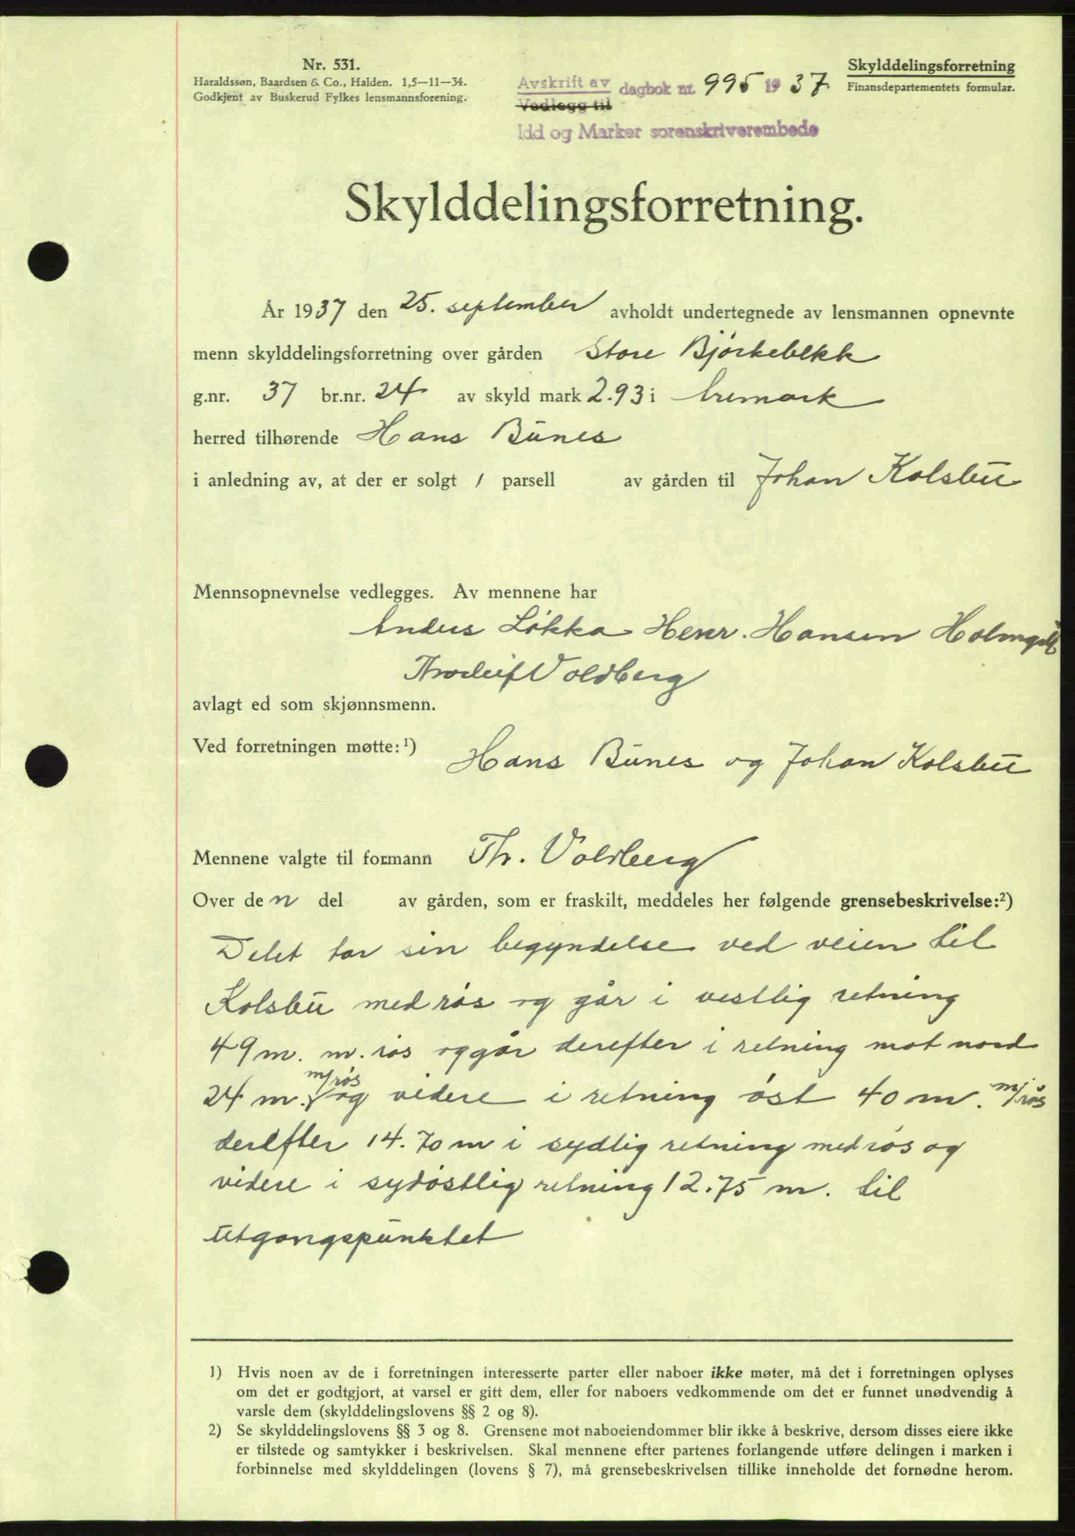 Nr. 531.
Haraldssøn, Baardsen & Co., Halden. 1,5—11—34.
Godkjent av Buskerud Fylkes lensmannsforening.
Skylddelingsforretning
Finansdepartementets formular.
Avskrift av dagbok nr. 995 1937
Vedlegg til
Idd og Marker sorenskriverembede
Skylddelingsforretning.
År 1937 den 25. september avholdt undertegnede av lensmannen opnevnte
menn skylddelingsforretning over gården Store Bjørkebekk
g.nr. 37 br.nr. 24 av skyld mark 2.93 i Aremark
herred tilhørende Hans Bunes
i anledning av, at der er solgt 1 parsell av gården til Johan Kolsbu
Mennsopnevnelse vedlegges. Av mennene har
Anders Løkka Henr. Hansen
Voldberg
avlagt ed som skjønnsmenn.
Ved forretningen møtte:¹) Hans Bunes og Johan Kolsbu
Mennene valgte til formann Th. Voldberg
Over den del av gården, som er fraskilt, meddeles her følgende grensebeskrivelse:²)
Delet tar sin begyndelse ved veien til
Kolsbu med røs og går i vestlig retning
49 m. m. røs og går derefter i retning mot nord
24 m. m/røs og videre i retning øst 40 m. m/røs
derefter 14.70 m i sydlig retning med røs og
videre i sydøstlig retning 12.75 m. til
utgangspunktet
1) Hvis noen av de i forretningen interesserte parter eller naboer ikke møter, må det i forretningen oplyses
om det er godtgjort, at varsel er gitt dem, eller for naboers vedkommende om det er funnet unødvendig å
varsle dem (skylddelingslovens §§ 2 og 8).
2) Se skylddelingslovens §§ 3 og 8. Grensene mot naboeiendommer blir ikke å beskrive, dersom disses eiere ikke
er tilstede og samtykker i beskrivelsen. Skal mennene efter partenes forlangende utføre delingen i marken i
forbinnelse med skylddelingen (lovens § 7), må grensebeskrivelsen tillike inneholde det fornødne herom.